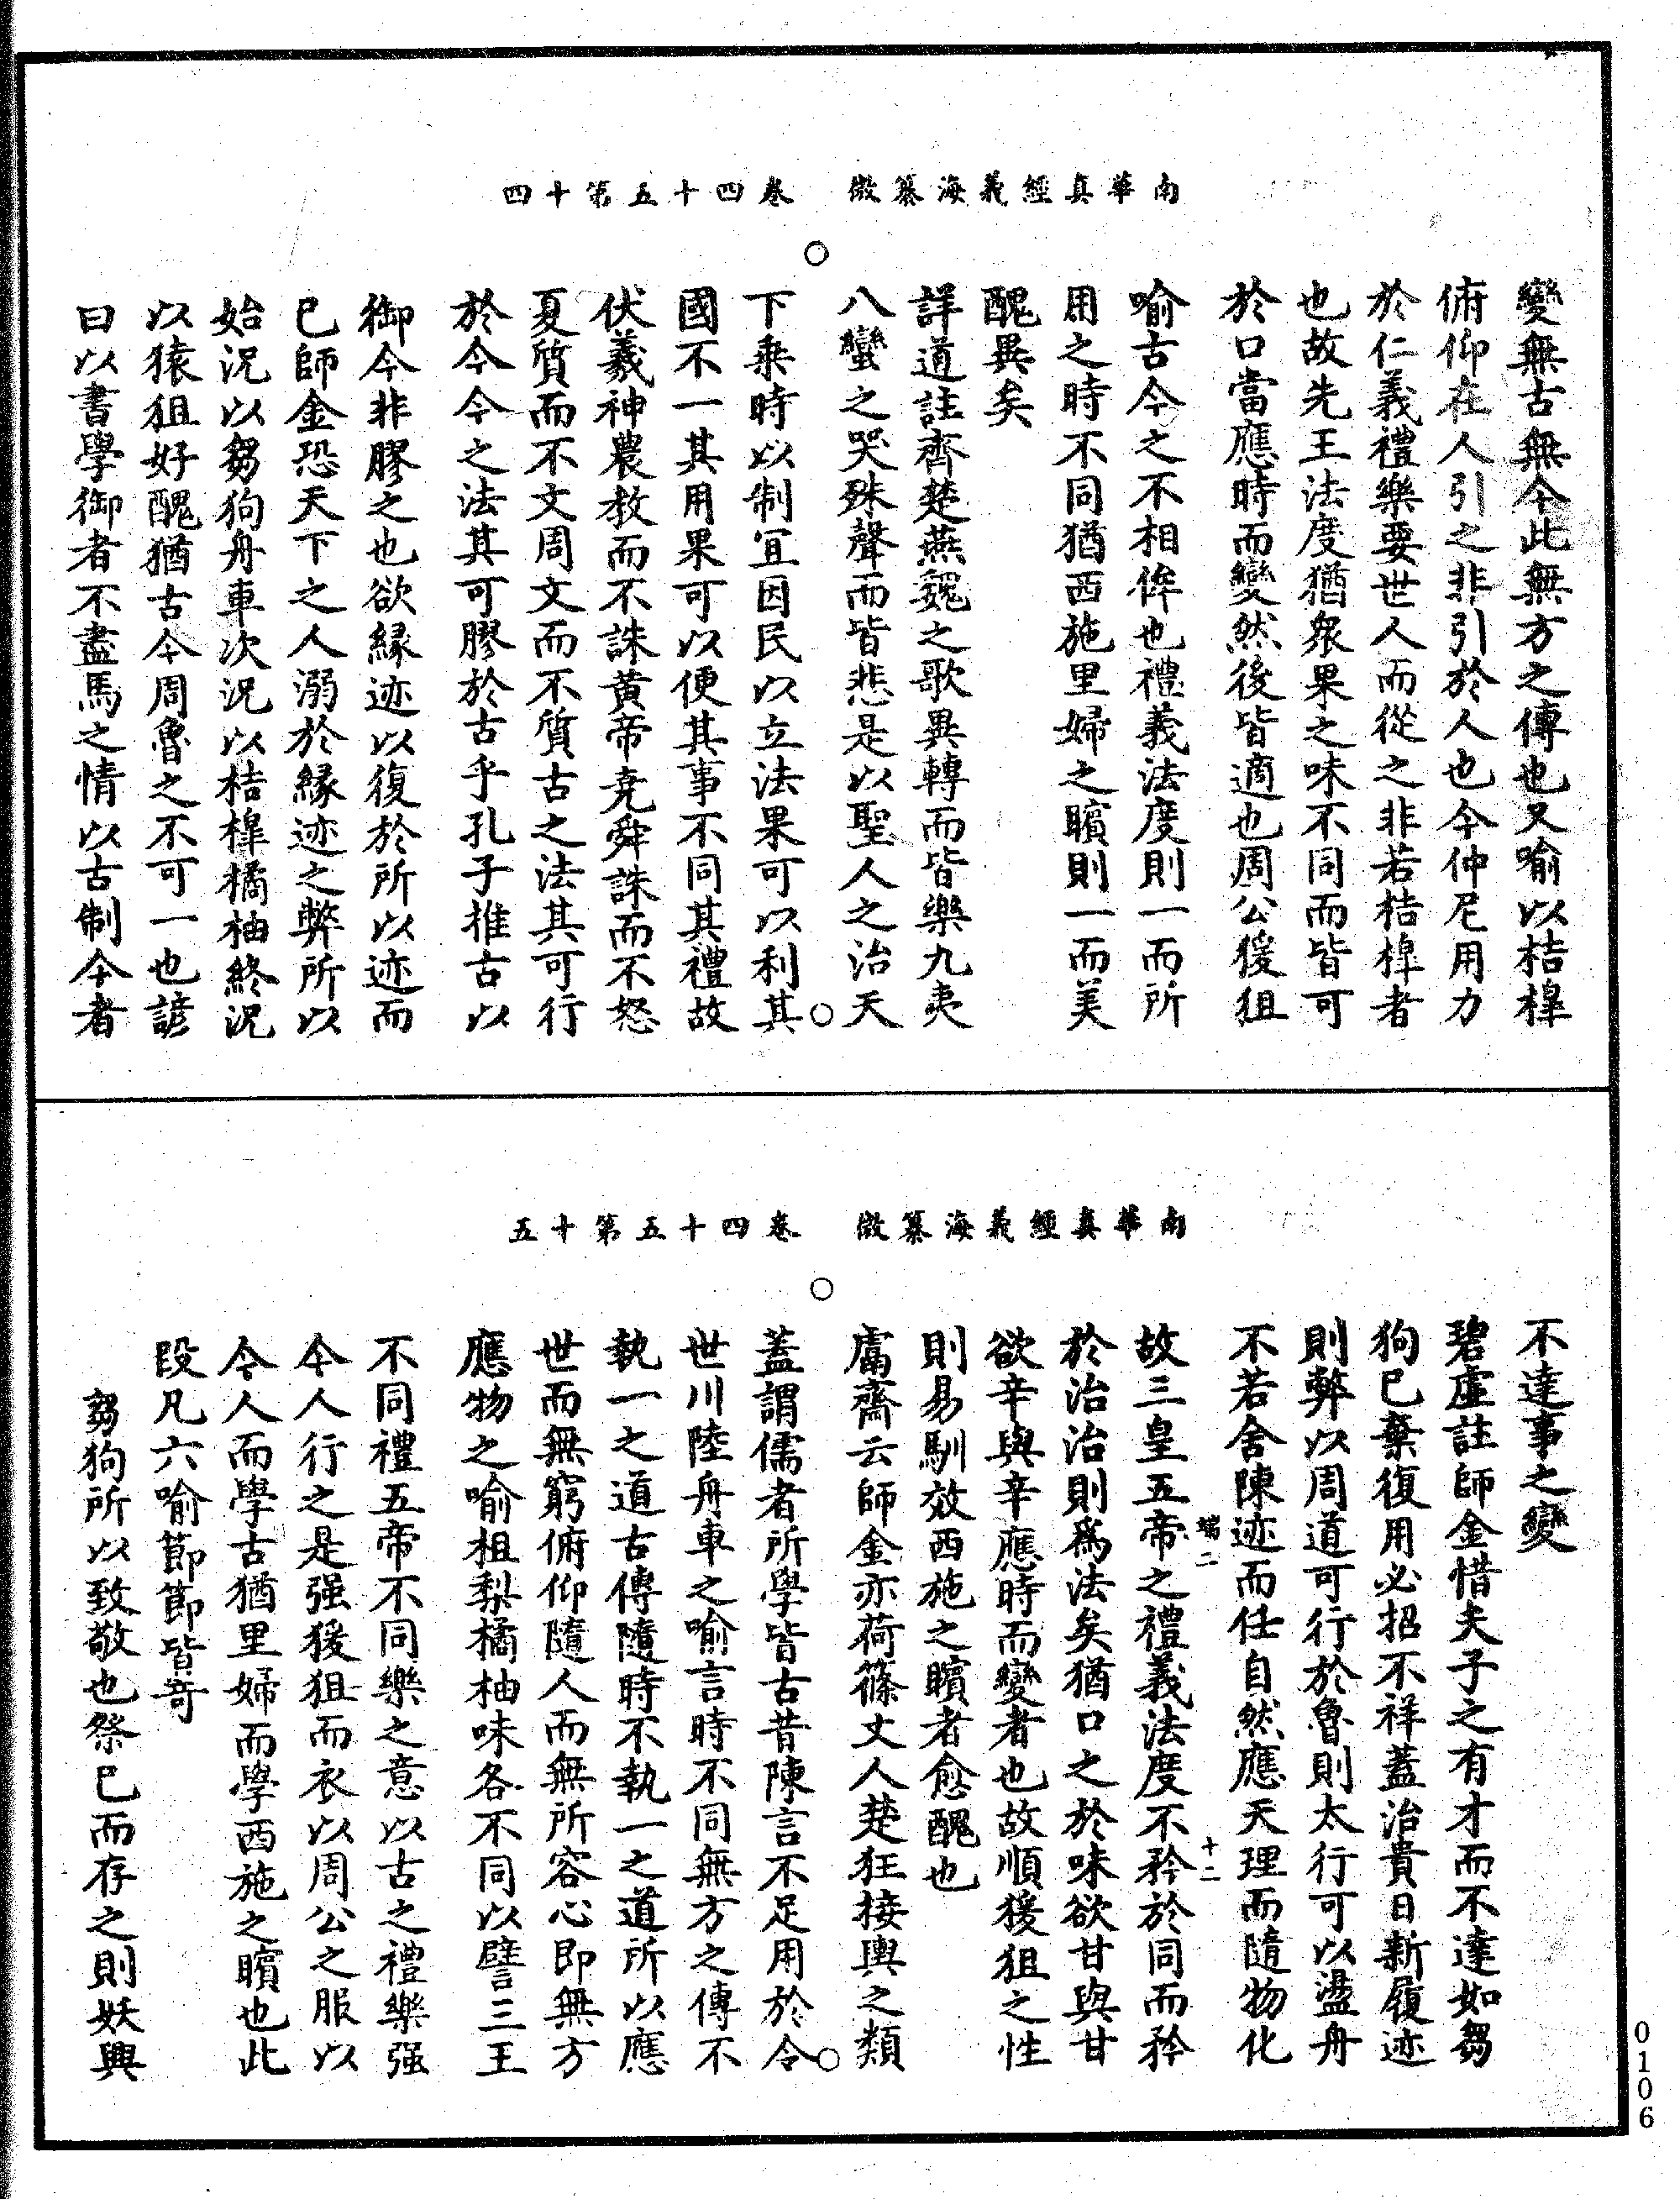 南華真經義海纂微　卷四十五第十四
變無古無今此無方之傳也又喻以桔槹
俯仰在人引之非引於人也今仲尼用力
於仁義禮樂要世人而從之非若桔槹者
也故先王法度猶衆果之味不同而皆可
於口當應時而變然後皆適也周公猨狙
喻古今之不相侔也禮義法度則一而所
用之時不同猶西施里婦之矉則一而美
醜異矣
詳道註齊楚燕魏之歌異轉而皆樂九夷
八蠻之哭殊聲而皆悲是以聖人之治天
下乗時以制冝因民以立法果可以利其
國不一其用果可以便其事不同其禮故
伏羲神農教而不誅黄帝堯舜誅而不怒
夏質而不文周文而不質古之法其可行
於今今之法其可膠於古乎孔子推古以
御今非膠之也欲緣迹以復於所以迹而
已師金恐天下之人溺於緣迹之弊所以
始況以芻狗舟車次況以桔槹橘柚終況
以猿狙好醜猶古今周魯之不可一也諺
曰以書學御者不盡馬之情以古制今者
南華真經義海纂微　卷四十五第十五
不達事之變
碧虛註師金惜夫子之有才而不達如芻
狗已棄復用必招不祥蓋治貴日新履迹
則弊以周道可行於魯則太行可以盪舟
不若舍陳迹而任自然應天理而隨物化
端二　十二
故三皇五帝之禮義法度不矜於同而矜
於治治則爲法矣猶口之於味欲甘與甘
欲辛與辛應時而變者也故順猨狙之性
則易馴效西施之矉者愈醜也
鬳齋云師金亦荷篠丈人楚狂接輿之類
蓋謂儒者所學皆古昔陳言不足用於今
世川陸舟車之喻言時不同無方之傳不
執一之道古傳隨時不執一之道所以應
世而無窮俯仰隨人而無所容心即無方
應物之喻柤梨橘柚味各不同以譬三王
不同禮五帝不同樂之意以古之禮樂强
今人行之是强猨狙而衣以周公之服以
今人而學古猶里婦而學西施之矉也此
段凡六喻節節皆奇
芻狗所以致敬也祭已而存之則妖興
0106